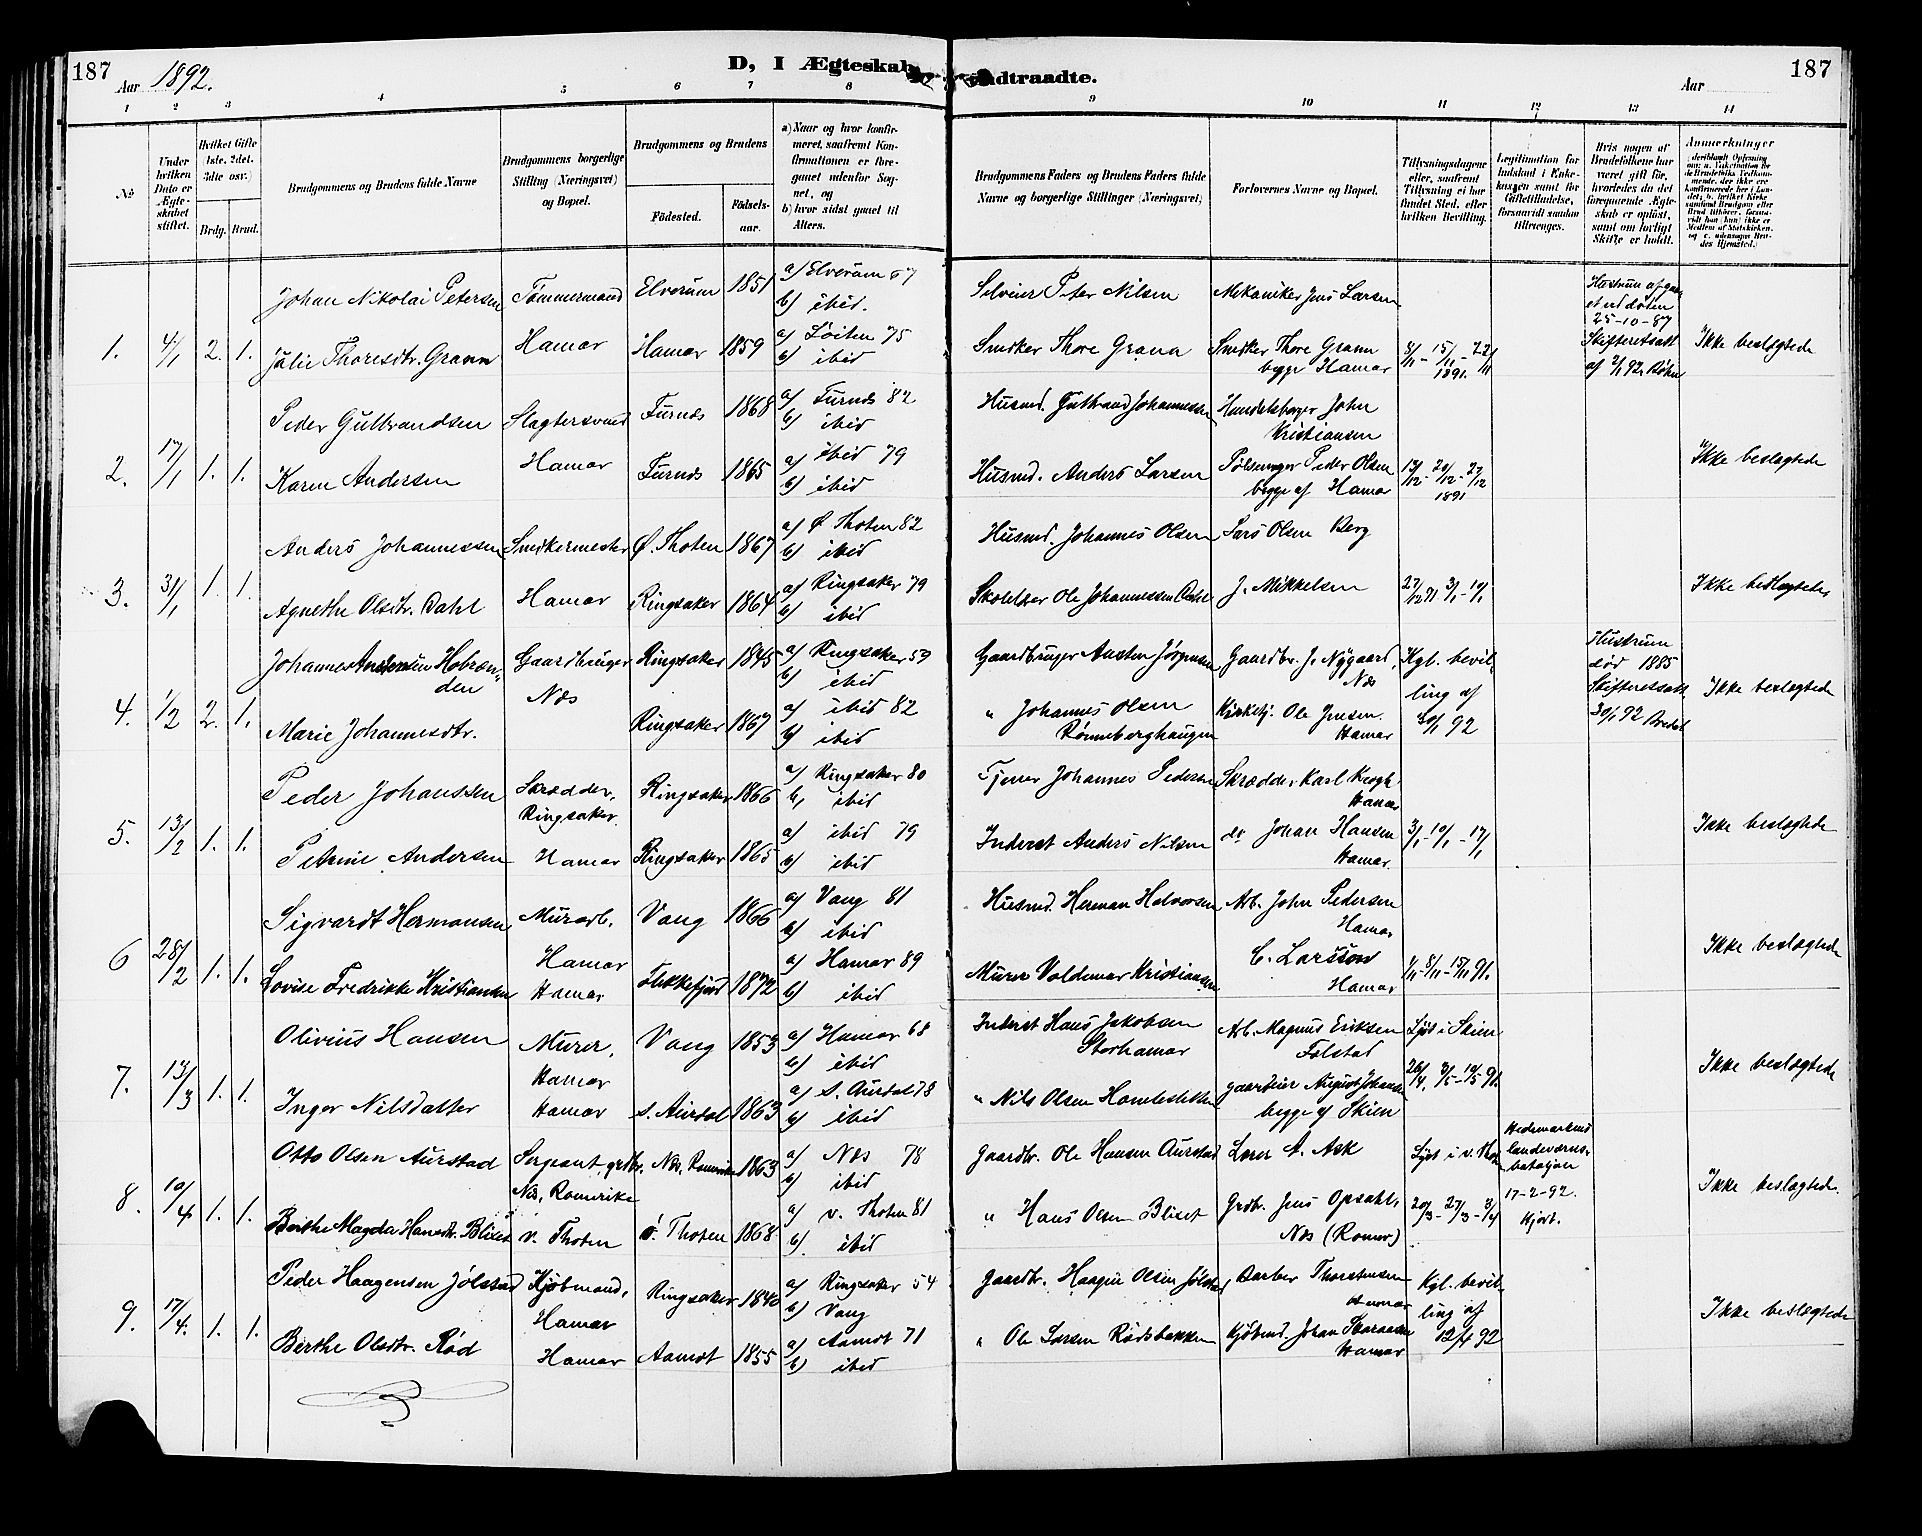 187
Aar 1892.
D, I Ægteskab Indtraadte.
Aar
187
1 2 3 4 5 6 7 8 9 10 11 12 13 14
No
Under hvilken Dato er Ægteskabet stiftet.
Hvilket Gifte (1ste, 2det, 3die osv.)
Brdg. Brud.
Brudgommens og Brudens fulde Navne
Brudgommens borgerlige Stilling (Næringsvei) og Bopæl.
Brudgommens og Brudens
Födested.
Födselsaar.
a) Naar og hvor konfirmeret, saafremt Konfirmationen er foregaaet udenfor Sognet, og
b) hvor sidst gaaet til Alters.
Brudgommens Faders og Brudens Faders fulde Navne og borgerlige Stillinger (Næringsvei)
Forlovernes Navne og Bopæl.
Tillysningsdagene eller, saafremt Tillysning ei har fundet Sted, efter hvilken Bevilling.
Legitimation for Indskud i Enkekassen samt for Giftetilladelse, forsaavidt saadan tiltrænges.
Hvis nogen af Brudefolkene har været gift för, hvorledes da det foregaaende Ægteskab er oplöst, samt om lovligt Skifte er holdt.
Anmærkninger
1. 4/1 2. 1.
Johan Nikolai Petersen Tömmermand Elverum 1851 a) Elverum 67
b) ibid.
Selveier Peter Nilsen Mekaniker Jens Larsen
Hustrum afgaaet ved døden 25-10-87
Julie Thoresdtr. Grann Hamar Hamar 1859 a) Löiten 75
b) ibid
Snedker Thore Grann Snedker Thore Grann begge Hamar 8/11 - 15/11 - 22/11 1891. Skifteretsatt af 2/1 92 Ikke beslægtede
2. 17/1 1. 1.
Peder Gulbrandsen Slagtersvend Furnes 1868 a) Furnes 82
b) ibid
Husmd. Gulbrand Johannessen Handelsborger John Kristiansen
Karen Andersen Hamar Furnes 1865 a) ibid 79
b) ibid
Husmd. Anders Larsen Pölsemager Peder Olsen begge af Hamar 13/12 - 20/12 - 27/12 1891 Ikke beslægtede
3. 31/1 1. 1.
Anders Johannessen Snedkermester Ø. Thoten 1867 a) Ø Thoten 82
b) ibid
Husmd. Johannes Olsen Lars Olsen Berg
Agnethe Olsdtr. Dahl Hamar Ringsaker 1864 a) Ringsaker 79
b) ibid
Ole Johannessen Dahl J. Mikkelsen 27/12 91 3/1 - 10/1 Ikke beslægtede
4. 1/2 2. 1.
Johannes Gaardbruger Ringsaker 1845 a) Ringsaker 59
b) ibid
Næs
Gaardbruger Austen Jörgensen Gaardbr. J. Nygaard, Næs Kgl. bevilling af 30/1 92
Hustrum död 1885 Skifteretsatt 30/1 92
Marie Johannesdtr. Ringsaker 1867 a) ibid 82
b) ibid
" Johannes Olsen Rönneberghaugen Kirketj. Ole Jensen. Hamar Ikke beslægtede
5. 13/2 1. 1.
Peder Johanssen Skrædder, Ringsaker Ringsaker 1866 a) Ringsaker 80
b) ibid
Tjener Johannes Pedersen Skrædder Karl Krogh Hamar
Petrine Andersen Hamar Ringsaker 1865 a) ibid 79
b) ibid
Inderst Anders Nilsen do Johan Hansen Hamar. 3/1 - 10/1 - 17/1 Ikke beslægtede
6 28/2 1. 1.
Sigvardt Hermansen Murarb. Hamar Vang 1866 a) Vang 81
b) ibid
Husmd. Herman Halvorsen Arb. John Pedersen Hamar
Lovise Fredrikke Kristiansen Hamar Flekkefjord 1872 a) Hamar 89
b) ibid
Murer Valdemar Kristiansen C. Larsson Hamar 1/11 - 8/11 - 15/11 91. Ikke beslægtede
7. 13/3 1. 1.
Olivius Hansen Murer, Hamar Vang 1853 a) Hamar 68
b) ibid
Inderst Hans Jakobsen Storhamar Arb. Magnus Eriksen Folstad Lyst i Skien
Inger Nilsdatter Hamar S. Aurdal 1863 a) S. Aurdal 78
b) ibid
" Nils Olsen gaardeier August Johansen begge af Skien 26/4, 3/5 - 10/5 91. Ikke beslægtede
8. 10/4 1. 1.
Otto Olsen Aurstad Sergeant, grdbr. Næs, Romerike Næs, Romerike 1863 a) Næs 78
b) ibid
Gaardbr. Ole Hansen Aurstad Lærer A. Ask Lyst i v. Thoten Hedemarkens landeværnsbataljon 17-2-92. Hjort.
Berthe Magda Hansdtr. Blixet v. Thoten v. Thoten 1868 a) v. Thoten 81
b) ibid
" Hans Olsen Blixet Grdbr. Jens Opsahl, Næs (Romer.) 20/3 - 27/3 - 3/4 Ikke beslægtede.
9. 17/4. 1. 1.
Peder Haagensen Jølstad Kjøbmand, Hamar Ringsaker 1840 a) Ringsaker 54
b) Vang
Gaardbr. Haagen Olsen Jølstad, Barber Thorstensen Hamar Kgl. bevilling af 12/4 92
Berthe Olsdtr. Rød Hamar Aamot 1855 a) Aamot 71
b) ibid
" Ole Larsen Rødsbakken Kjöbmd. Johan Skaraasen Hamar Ikke beslægtede